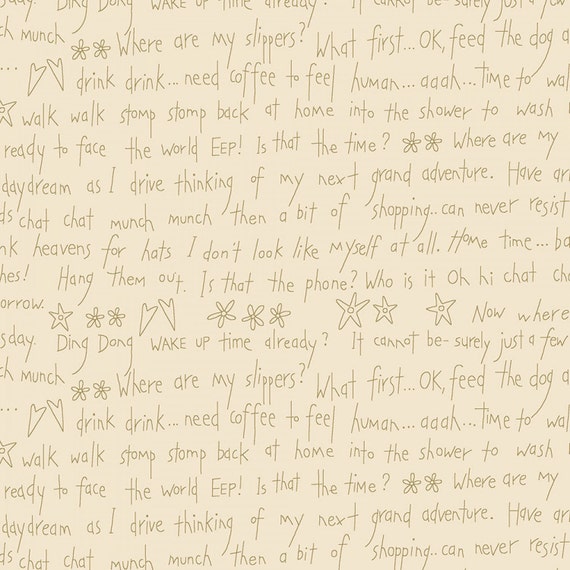 sday. Ding Dong WAKE UP time already? It cannot be- surely just a few
ch munch Where are my slippers? What first... OK, feed the dog a
... drink drink... need coffee to feel human... aaah... Time to wal
walk walk stomp stomp back at home into the shower to wash
ready to face the world EEP! Is that the time? Where are my
daydream as I drive thinking of my next grand adventure. Have arr
ds chat chat munch munch then a bit of shopping.. can never resist
nk heavens for hats I don't look like myself at all. Home time... ba
hes! Hang them out. Is that the phone? Who is it Oh hi chat cha
orrow. Now where
sday. Ding Dong WAKE UP time already? It cannot be- surely just a few
ch munch Where are my slippers? What first... OK, feed the dog a
... drink drink... need coffee to feel human... aaah... Time to wal
walk walk stomp stomp back at home into the shower to wash
ready to face the world EEP! Is that the time? Where are my
daydream as I drive thinking of my next grand adventure. Have arr
ds chat chat munch munch then a bit of shopping.. can never resist